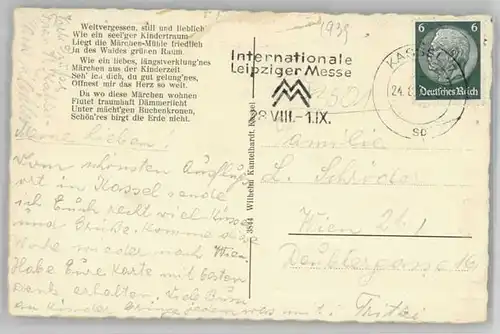 Weltvergessen, still und lieblich
Wie ein seel'ger Kindertraum
Liegt die Märchen-Mühle friedlich
In des Waldes grünen Raum.
Wie ein liebes, längstverklung'nes
Märchen aus der Kinderzeit
Seh' ich dich, du gut gelung'nes,
Öffnest mir das Herz so weit.
Da wo diese Märchen wohnen
Flutet traumhaft Dämmerlicht
Unter mächt'gen Buchenkronen,
Schön'res birgt die Erde nicht.
Meine Lieben!
Vom schönsten Ausflugs
ort in Kassel sende
ich Euch recht viel Küsse
und Grüße. Komme
Woche wieder nach Wien.
Habe Eure Karte mit besten
Dank erhalten. Viele
an Kinder bringe jedem was mit! Fritzi
3844 Wilhelm Kantelhardt, Kassel
1939
Internationale
Leipziger Messe
28.VIII.-1.IX.
KASSEL
24.
6 6
Deutsches Reich
Familie
L. Schröder
Wien
16